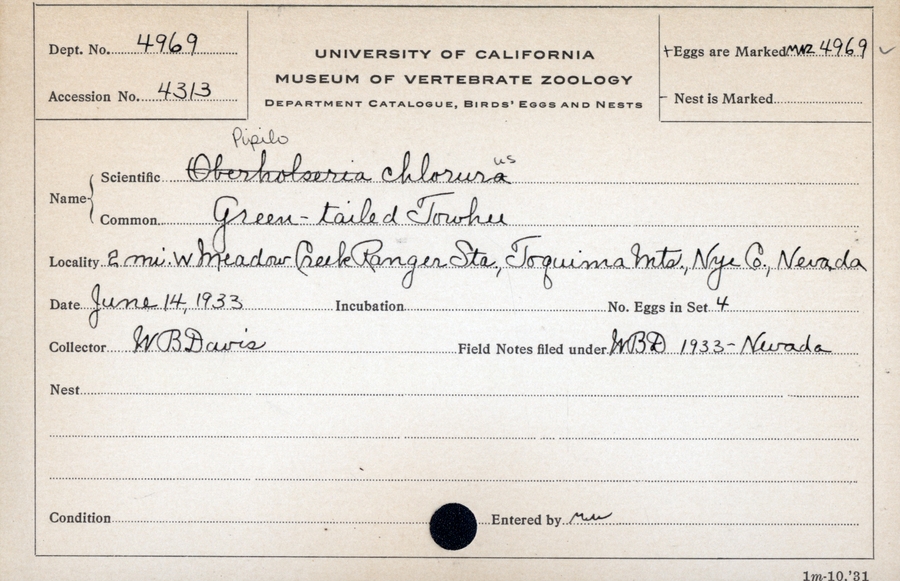 Dept. No. 4969
UNIVERSITY OF CALIFORNIA
MUSEUM OF VERTEBRATE ZOOLOGY
DEPARTMENT CATALOGUE, BIRDS' EGGS AND NESTS
+Eggs are Marked MVZ 4969 ✓
Accession No. 4313
- Nest is Marked
Pipilo
Name { Scientific Oberholseria chlorura us
Common Green-tailed Towhee
Locality 2 mi. W Meadow Creek Ranger Sta., Toquima Mts., Nye Co., Nevada
Date June 14, 1933 Incubation No. Eggs in Set 4
Collector WBDavis Field Notes filed under WBD 1933-Nevada
Nest
Condition Entered by
1m-10.'31